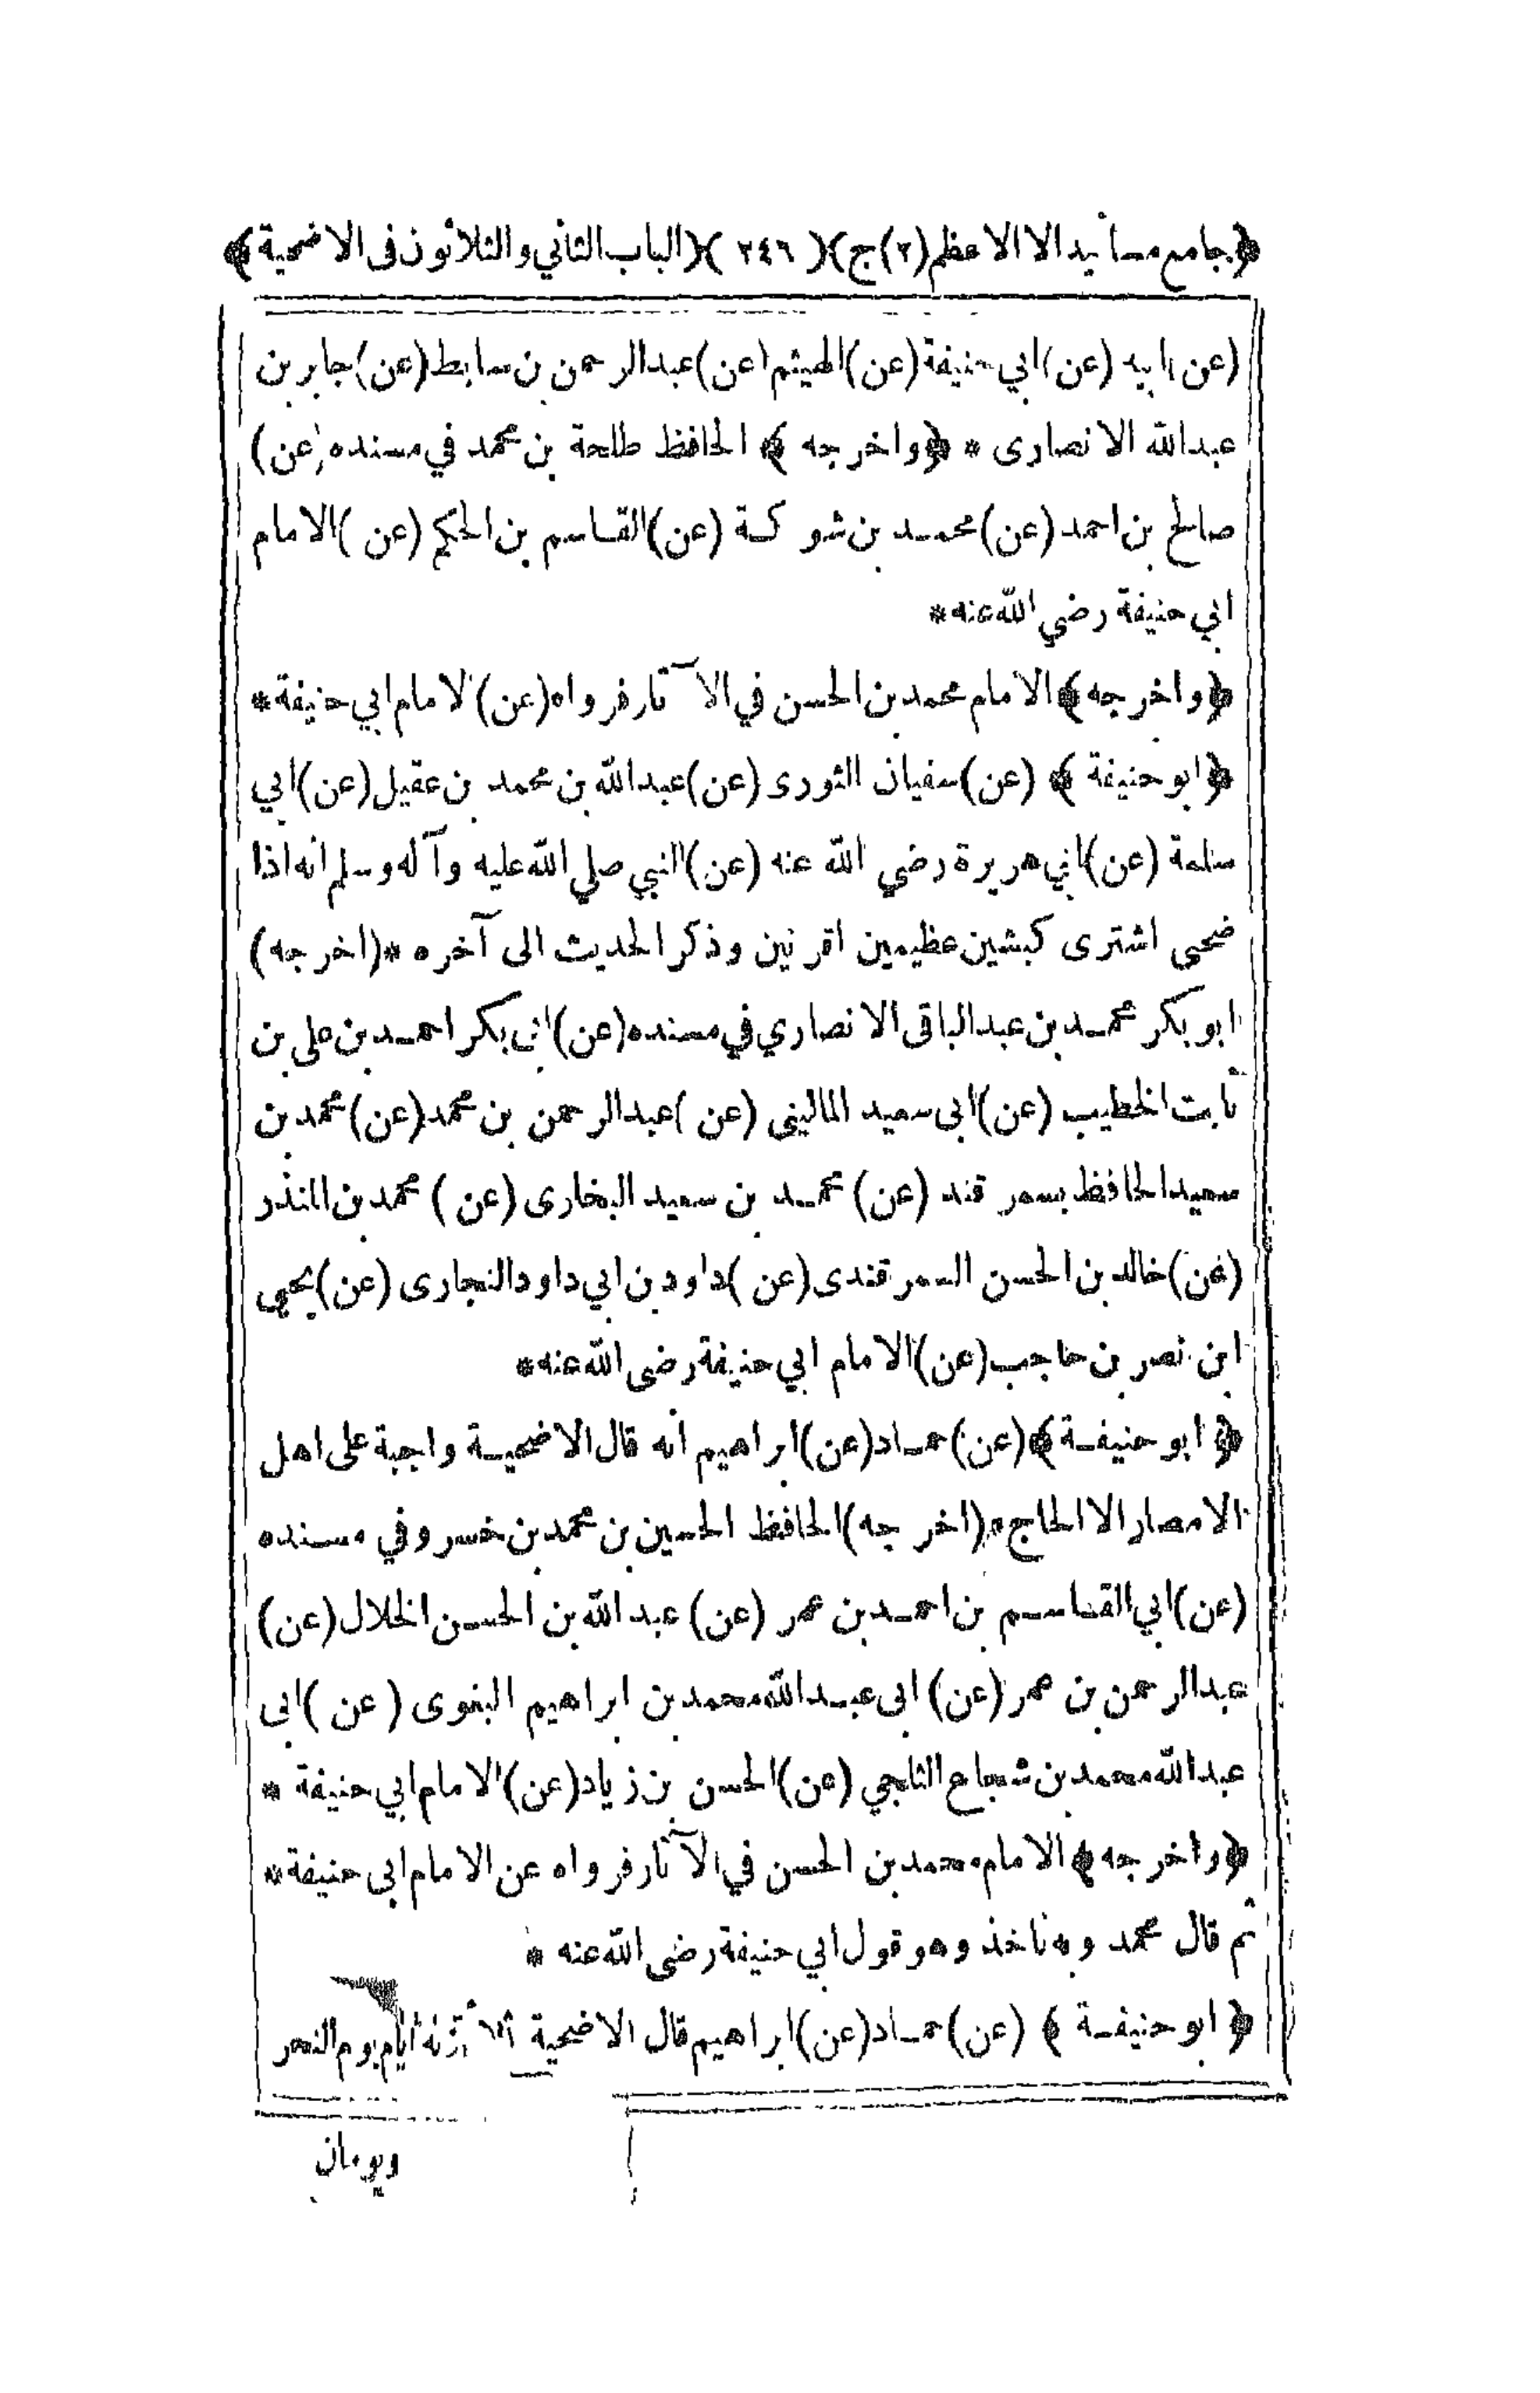 ﴿جامع مسانيد الا الاعظم (٢) ج﴾ ( ٢٤٦ ) ﴿الباب الثاني والثلاثون فى الاضحية﴾
(عن) ابيه (عن) ابي حنيفة (عن) الهيثم (عن) عبد الرحمن بن سابط (عن) جابر بن
عبد الله الانصارى * ﴿واخرجه﴾ الحافظ طلحة بن محمد في مسنده (عن)
صالح بن احمد (عن) محمد بن شوكة (عن) القاسم بن الحكم (عن) الامام
ابي حنيفة رضي الله عنه *
﴿واخرجه﴾ الامام محمد بن الحسن في الآثار فرواه (عن) الامام ابي حنيفة *
﴿ابو حنيفة﴾ (عن) سفيان الثورى (عن) عبد الله بن محمد بن عقيل (عن) ابي
سلمة (عن) ابي هريرة رضي الله عنه (عن) النبي صلي الله عليه وآله وسلم انه اذا
ضحى اشترى كبشين عظيمين اقرنين وذكر الحديث الى آخره * (اخرجه)
ابو بكر محمد بن عبد الباقى الانصاري في مسنده (عن) ابى بكر احمد بن على بن
ثابت الخطيب (عن) ابى سعيد المالينى (عن) عبد الرحمن بن محمد (عن) محمد بن
سعيد الحافظ بسمرقند (عن) محمد بن سعيد البخارى (عن) محمد بن المنذر
(عن) خالد بن الحسن السمرقندى (عن) داود بن ابي داود النجارى (عن) يحيى
ابن نصر بن حاجب (عن) الامام ابي حنيفة رضى الله عنه *
﴿ابو حنيفة﴾ (عن) حماد (عن) ابراهيم انه قال الاضحية واجبة على اهل
الامصار الا الحاج * (اخرجه) الحافظ الحسين بن محمد بن خسرو في مسنده
(عن) ابي القاسم بن احمد بن عمر (عن) عبد الله بن الحسن الخلال (عن)
عبد الرحمن بن عمر (عن) ابى عبد الله محمد بن ابراهيم البغوى (عن) ابى
عبد الله محمد بن شجاع الثلجي (عن) الحسن بن زياد (عن) الامام ابي حنيفة *
﴿واخرجه﴾ الامام محمد بن الحسن في الآثار فرواه عن الامام ابى حنيفة *
ثم قال محمد وبه ناخذ وهو قول ابي حنيفة رضى الله عنه *
﴿ابو حنيفة﴾ (عن) حماد (عن) ابراهيم قال الاضحية ثلاثة ايام يوم النحر
ويومان